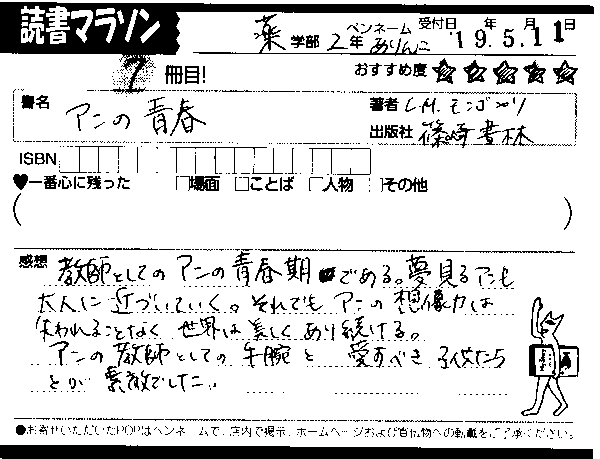 読書マラソン
薬 学部 2年 ペンネーム ありんこ 受付日 '19年5月11日
7 冊目! おすすめ度 ☆☆☆☆☆
書名 アンの青春 著者 L.M.モンゴメリ
出版社 篠崎書林
ISBN
♥一番心に残った □場面 □ことば □人物 □その他
( )
感想 教師としてのアンの青春期である。夢見るアンも
大人に近づいていく。それでもアンの想像力は
失われることなく世界は美しくあり続ける。
アンの教師としての手腕と愛すべき子供たち
とが素敵でした。
●お寄せいただいたPOPはペンネームで、店内で掲示、ホームページおよび宣伝物への転載をご了承ください。